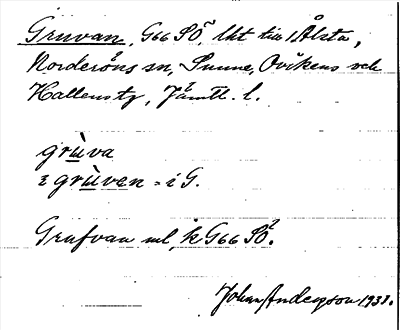 Gruvan, G66 SÖ, lht till 1 Ålsta,
Norderöns sn, Sunne, Ovikens och
Hallens tg, Jämtl. l.
grùva
i grùven = i G.
Grufvan ml, k G66 SÖ.
Johan Anderson 1931.